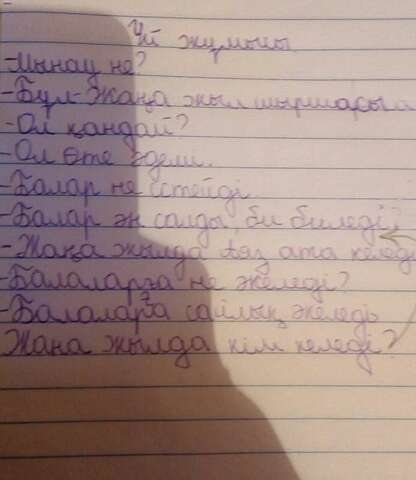 Үй жұмысы.
-Мынау не?
-Бұл-Жаңа жыл шыршасы
-Ол қандай?
-Ол өте әдемі.
-Балар не істейді
-Балар ән салды, би биледі
-Жаңа жылда Аяз ата келеді
-Балаларға не әкеледі?
-Балаларға сайлық әкеледі
Жаңа жылда кім келеді?